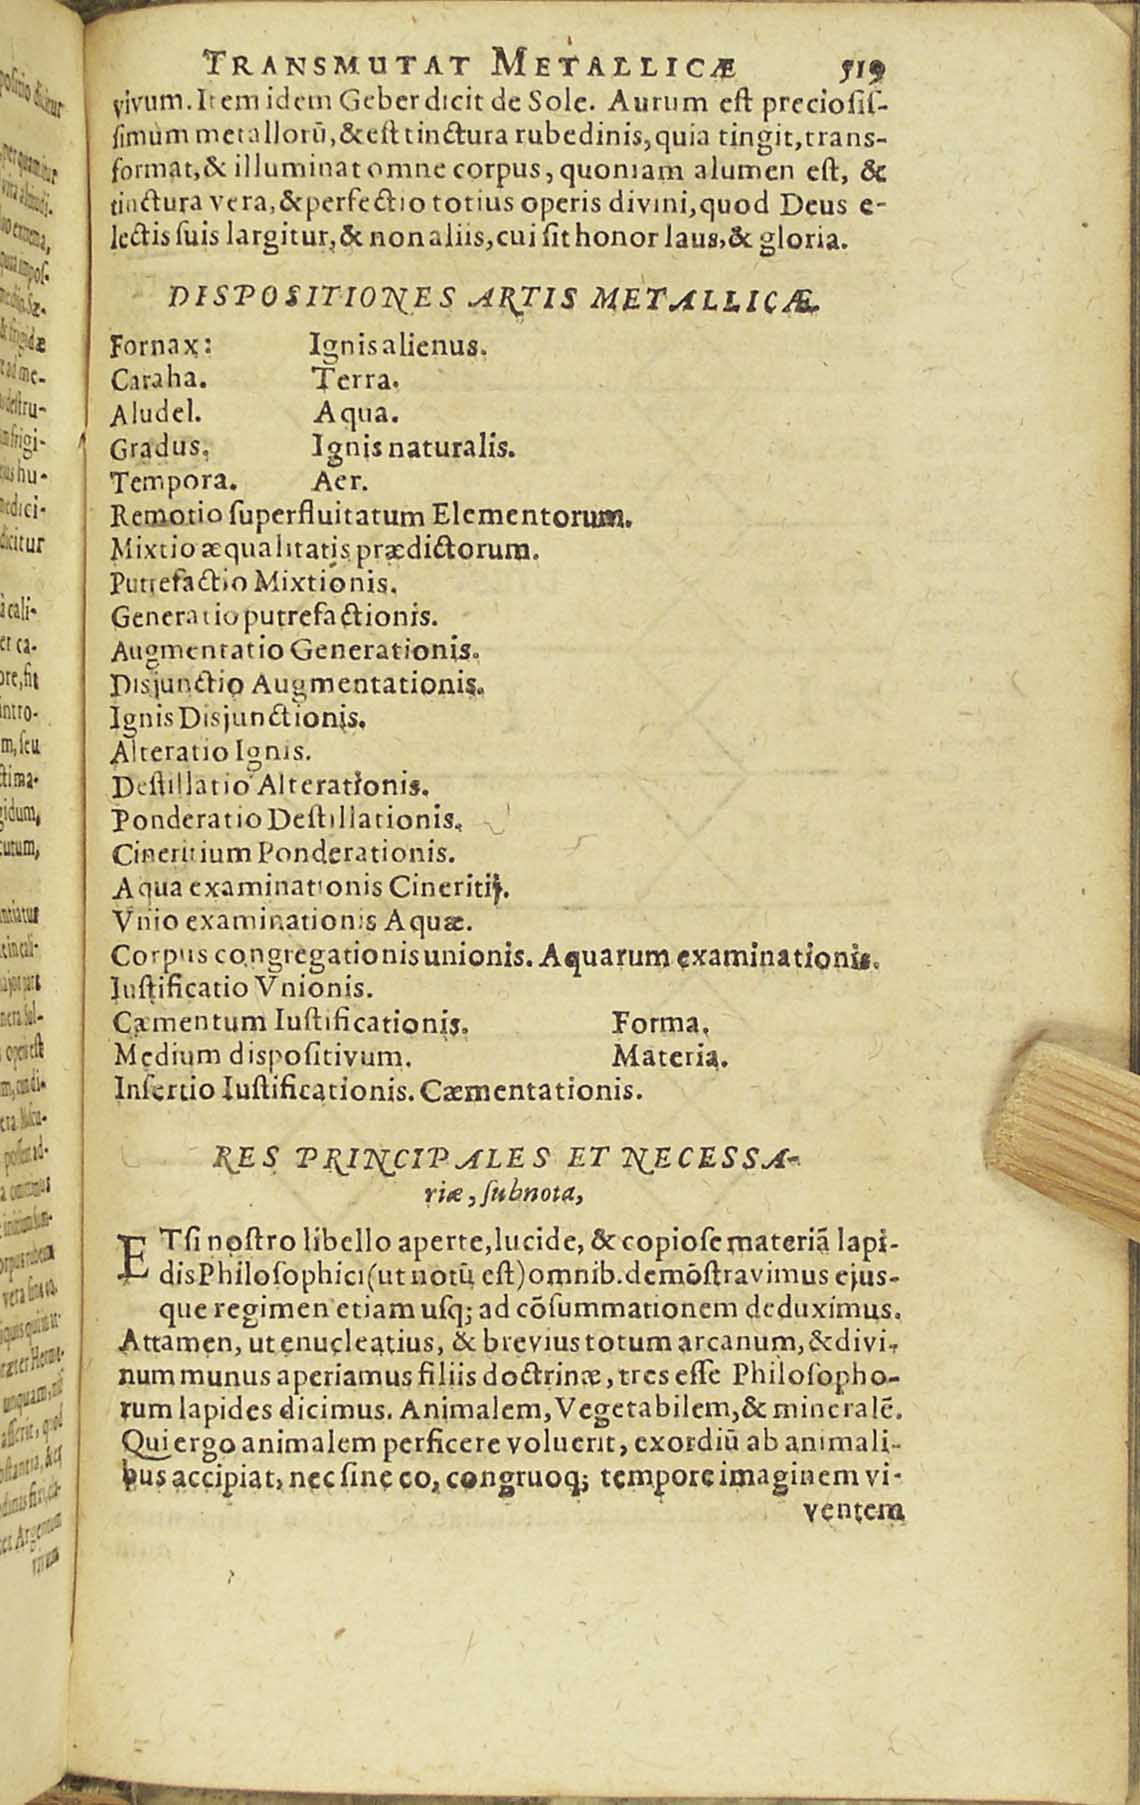 TRANSMUTAT METALLICÆ 519
vivum. Item idem Geber dicit de Sole. Aurum est preciosiſ-
ſimum metallorū, & est tinctura rubedinis, quia tingit, trans-
format, & illuminat omne corpus, quoniam alumen est, &
tinctura vera, & perfectio totius operis divini, quod Deus e-
lectis ſuis largitur, & non aliis, cui ſit honor laus, & gloria.
DISPOSITIONES ARTIS METALLICÆ.
Fornax: Ignis alienus.
Caraha. Terra.
Aludel. Aqua.
Gradus. Ignis naturalis.
Tempora. Aer.
Remotio ſuperfluitatum Elementorum.
Mixtio æqualitatis prædictorum.
Putrefactio Mixtionis.
Generatio putrefactionis.
Augmentatio Generationis.
Disjunctio Augmentationis.
Ignis Disjunctionis.
Alteratio Ignis.
Deſtillatio Alterationis.
Ponderatio Deſtillationis.
Cineritium Ponderationis.
Aqua examinationis Cineritij.
Vnio examinationis Aquæ.
Corpus congregationis unionis. Aquarum examinationis.
Iuſtificatio Vnionis.
Cæmentum Iuſtificationis. Forma.
Medium dispoſitivum. Materia.
Inſertio Iuſtificationis. Cæmentationis.
RES PRINCIPALES ET NECESSA-
riæ, ſubnota,
ETſi noſtro libello aperte, lucide, & copioſe materiā lapi-
dis Philoſophici (ut notū eſt) omnib. demōſtravimus ejus-
que regimen etiam uſq; ad cōſummationem deduximus.
Attamen, ut enucleatius, & brevius totum arcanum, & divi-
num munus aperiamus filiis doctrinæ, tres eſſe Philoſopho-
rum lapides dicimus. Animalem, Vegetabilem, & mineralē.
Qui ergo animalem perficere voluerit, exordiū ab animali-
bus accipiat, nec ſine eo, congruoq; tempore imaginem vi-
ventem